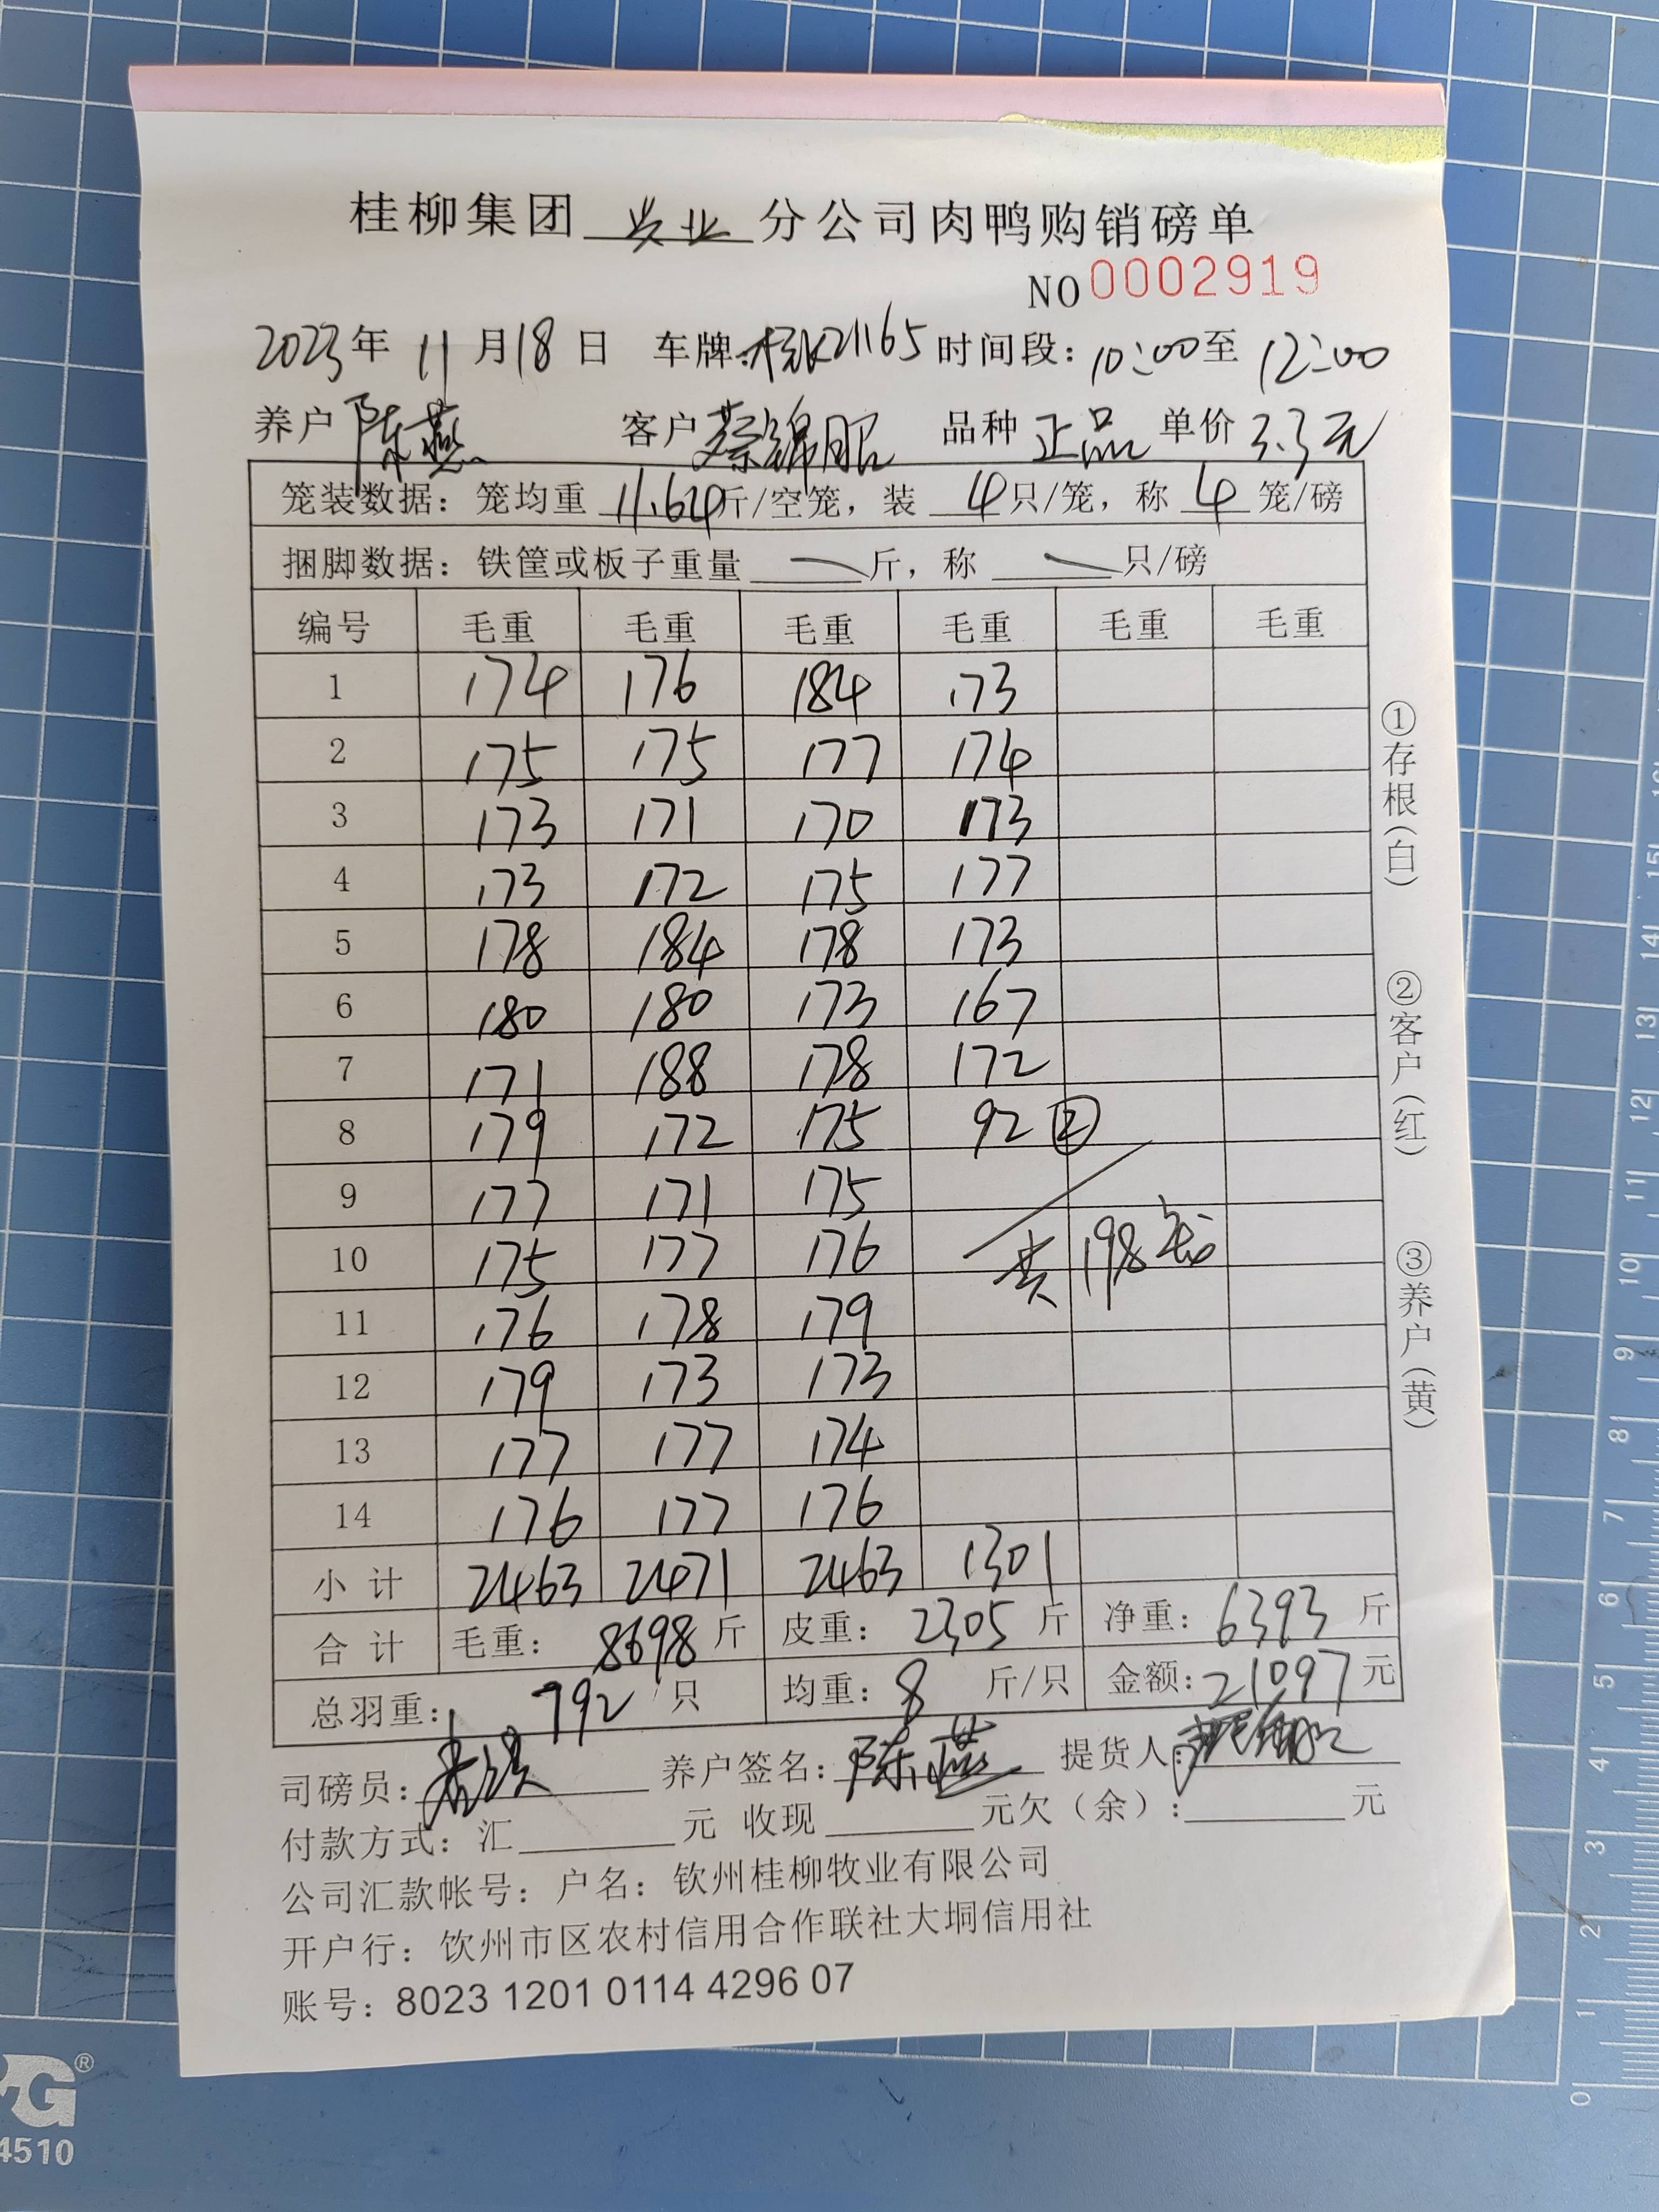 桂柳集团 兴业 分公司肉鸭购销磅单
NO 0002919
2023年 11月18日 车牌: 21165 时间段: 10:00至 12:00
养户 陈燕 客户 蔡锦昭 品种 正品 单价 3.3元
笼装数据: 笼均重 11.64斤/空笼, 装 4只/笼, 称 4笼/磅
捆脚数据: 铁筐或板子重量 — 斤, 称 — 只/磅
编号 毛重 毛重 毛重 毛重 毛重 毛重
1 174 176 184 173
2 175 175 177 174
3 173 171 170 173
4 173 172 175 177
5 178 184 178 173
6 180 180 173 167
7 171 188 178 172
8 179 172 175 92 ②
9 177 171 175
10 175 177 176 共198笼
11 176 178 179
12 179 173 173
13 177 177 174
14 176 177 176
小 计 2463 2471 2463 1301
合 计 毛重: 8698 斤 皮重: 2305 斤 净重: 6393 斤
总羽重: 792 只 均重: 8 斤/只 金额: 21097 元
司磅员: 养户签名: 陈燕 提货人:
付款方式: 汇 元 收现 元欠(余): 元
公司汇款帐号: 户名: 钦州桂柳牧业有限公司
开户行: 钦州市区农村信用合作联社大垌信用社
账号: 8023 1201 0114 4296 07
①存根(白)
②客户(红)
③养户(黄)
®
4510
0
1
2
3
4
5
6
7
8
9
10
11
12
13
14
15